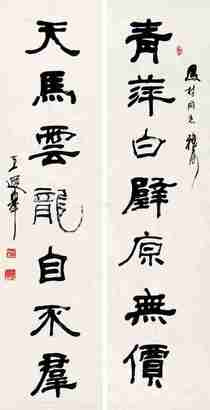 青萍白璧原無價
村同志
天馬雲龍自不羣
王遐舉